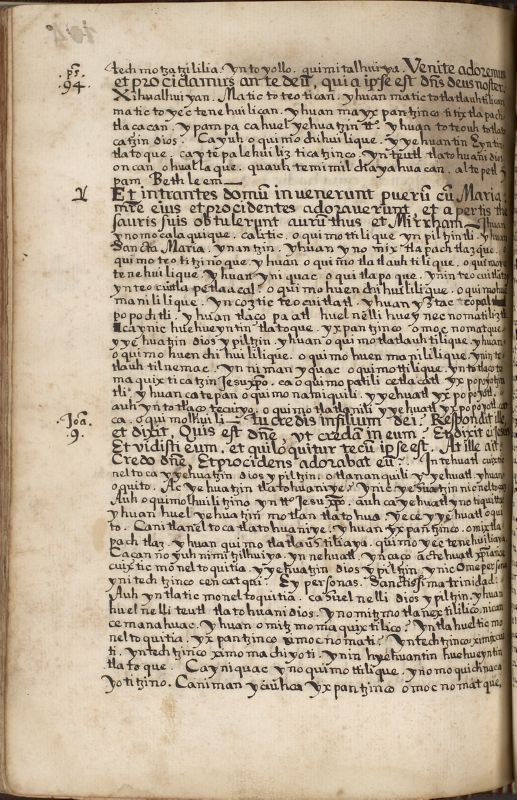 ps.
94.
tech motzatzililia. yn toyollo. quimitalhuiya. Venite adoremus
et procidamus ante deū, quia ipse est dn̄s deus noster.
Xihualhuiyan. Matictoteotican. yhuan matictotlatlauhtilican
matictoyectenehuilican. yhuan ma yxpantzinco titixtlapach
tlaçacan. ypampa ca huel yehuatzin tto yhuan toteouh totlato
catzin dios. Ca yuh oquimochihuilique. yyehuantin Eyntin
tlatoque. ca yte palehuiliztica tzinco. yn teutl tlatohuani dios
oncan ohuallaque. quauhtemimilchayahuacan. altepetl y
pan. Bethleem
Et intrantes domū invenerunt puerū cū Maria
mr̄e eius et procidentes adoraverunt et apertis the
sauris suis obtulerunt aurū thus et Mirrham yhuan
ynomocalaquique. calitic. oquimottilique yn piltzintli. yhuan
Sancta Maria. ynantzin. yhuan ynomixtlapachtlazque.
quimoteotitzinoque yhuan oquimotlatlauhtilique. oquimoyec
tenehuilique yhuan yniquac oquitlapoque. ynin teocuitla
yn teocuitlapetlacal. oquimohuenchihuililique. oquimohue
manililique. yn coztic teocuitlatl. yhuan yztac copal
popochtli. yhuan tlacopaatl huel nelli huey necnomatiliztli
caynic huehueyntin tlatoque. yxpantzinco omocnomatque
yyehuatzin dios ypiltzin. yhuan oquimotlatlauhtilique. yhuan
oquimohuenchihuililique. oquimohuenmanililique. ynin te
tlauhtilnemac. ynniman yquac oquimottilique. yntotlaçote
maquixticatzin Jesuxp̄o. ca oquimopatili cetlacatl yxpopoyotzin
tli. yhuan çatepan oquimonamiquili. yyehuatl yxpopoyotl.
auh yn totlaço tecuiyo. oquimotlatlanili yyehuatl yxpopoyotl ca
Joā.
9.
ca. oquimolhuili Tu credis in filium dei? Respondit ille
et dixit. Quis est dn̄e, vt credā in eum. Et dixit ei Jesus
Et vidisti eum, et qui loquitur tecū ipse est. At ille ait.
Credo dn̄e, Et procidens adorabat eū. In tehuatl cuix ti
neltoca yyehuatzin dios ypiltzin. otlananquili yyehuatl. yhuan
oquito. Ac yehuatzin tlatohuaniye? ynic yehuatzin nicneltocaz
Auh oquimolhuili tzino yn tto Jesu xp̄o. auh ca yehuatl yn otiquittac
yhuan huel yehuatzin motlantlatohua yece yyehuatl oqui
to. Ca nitlaneltoca tlatohuaniye. yhuan yxpantzinco. omixtla
pachtlaz. yhuan quimotlatlauhtiliaya. quimoyectenehuiliaya
Ca çan no yuh nimitzilhuiya. yn nehuatl. ynçaço actehuatl xp̄iano
cuix ticmoneltoquitia. yyehuatzin dios ypiltzin ynic ome perso
yni techtzinco cencatqui. Ey personas. Sanctissima trinidad?
Auh yntla ticmoneltoquitia. ca huel nelli dios ypiltzin. yhuan
huel nelli teutl tlatohuani dios. ynomitzmotlanextililico. nican
cemanahuac. yhuan omitzmomaquixtilico? yntla huel ticmo
neltoquitia. yxpantzinco ximocnomati? yntechtzinco ximixcui
ti. yntechtzinco ximomachiyoti. ynin hyehuantin huehueyntin
tlatoque. Ca yniquac ynoquimottilique. ynomoquichnaca
yotitzino. Ca niman yciuhca yxpantzinco omocnomatque.